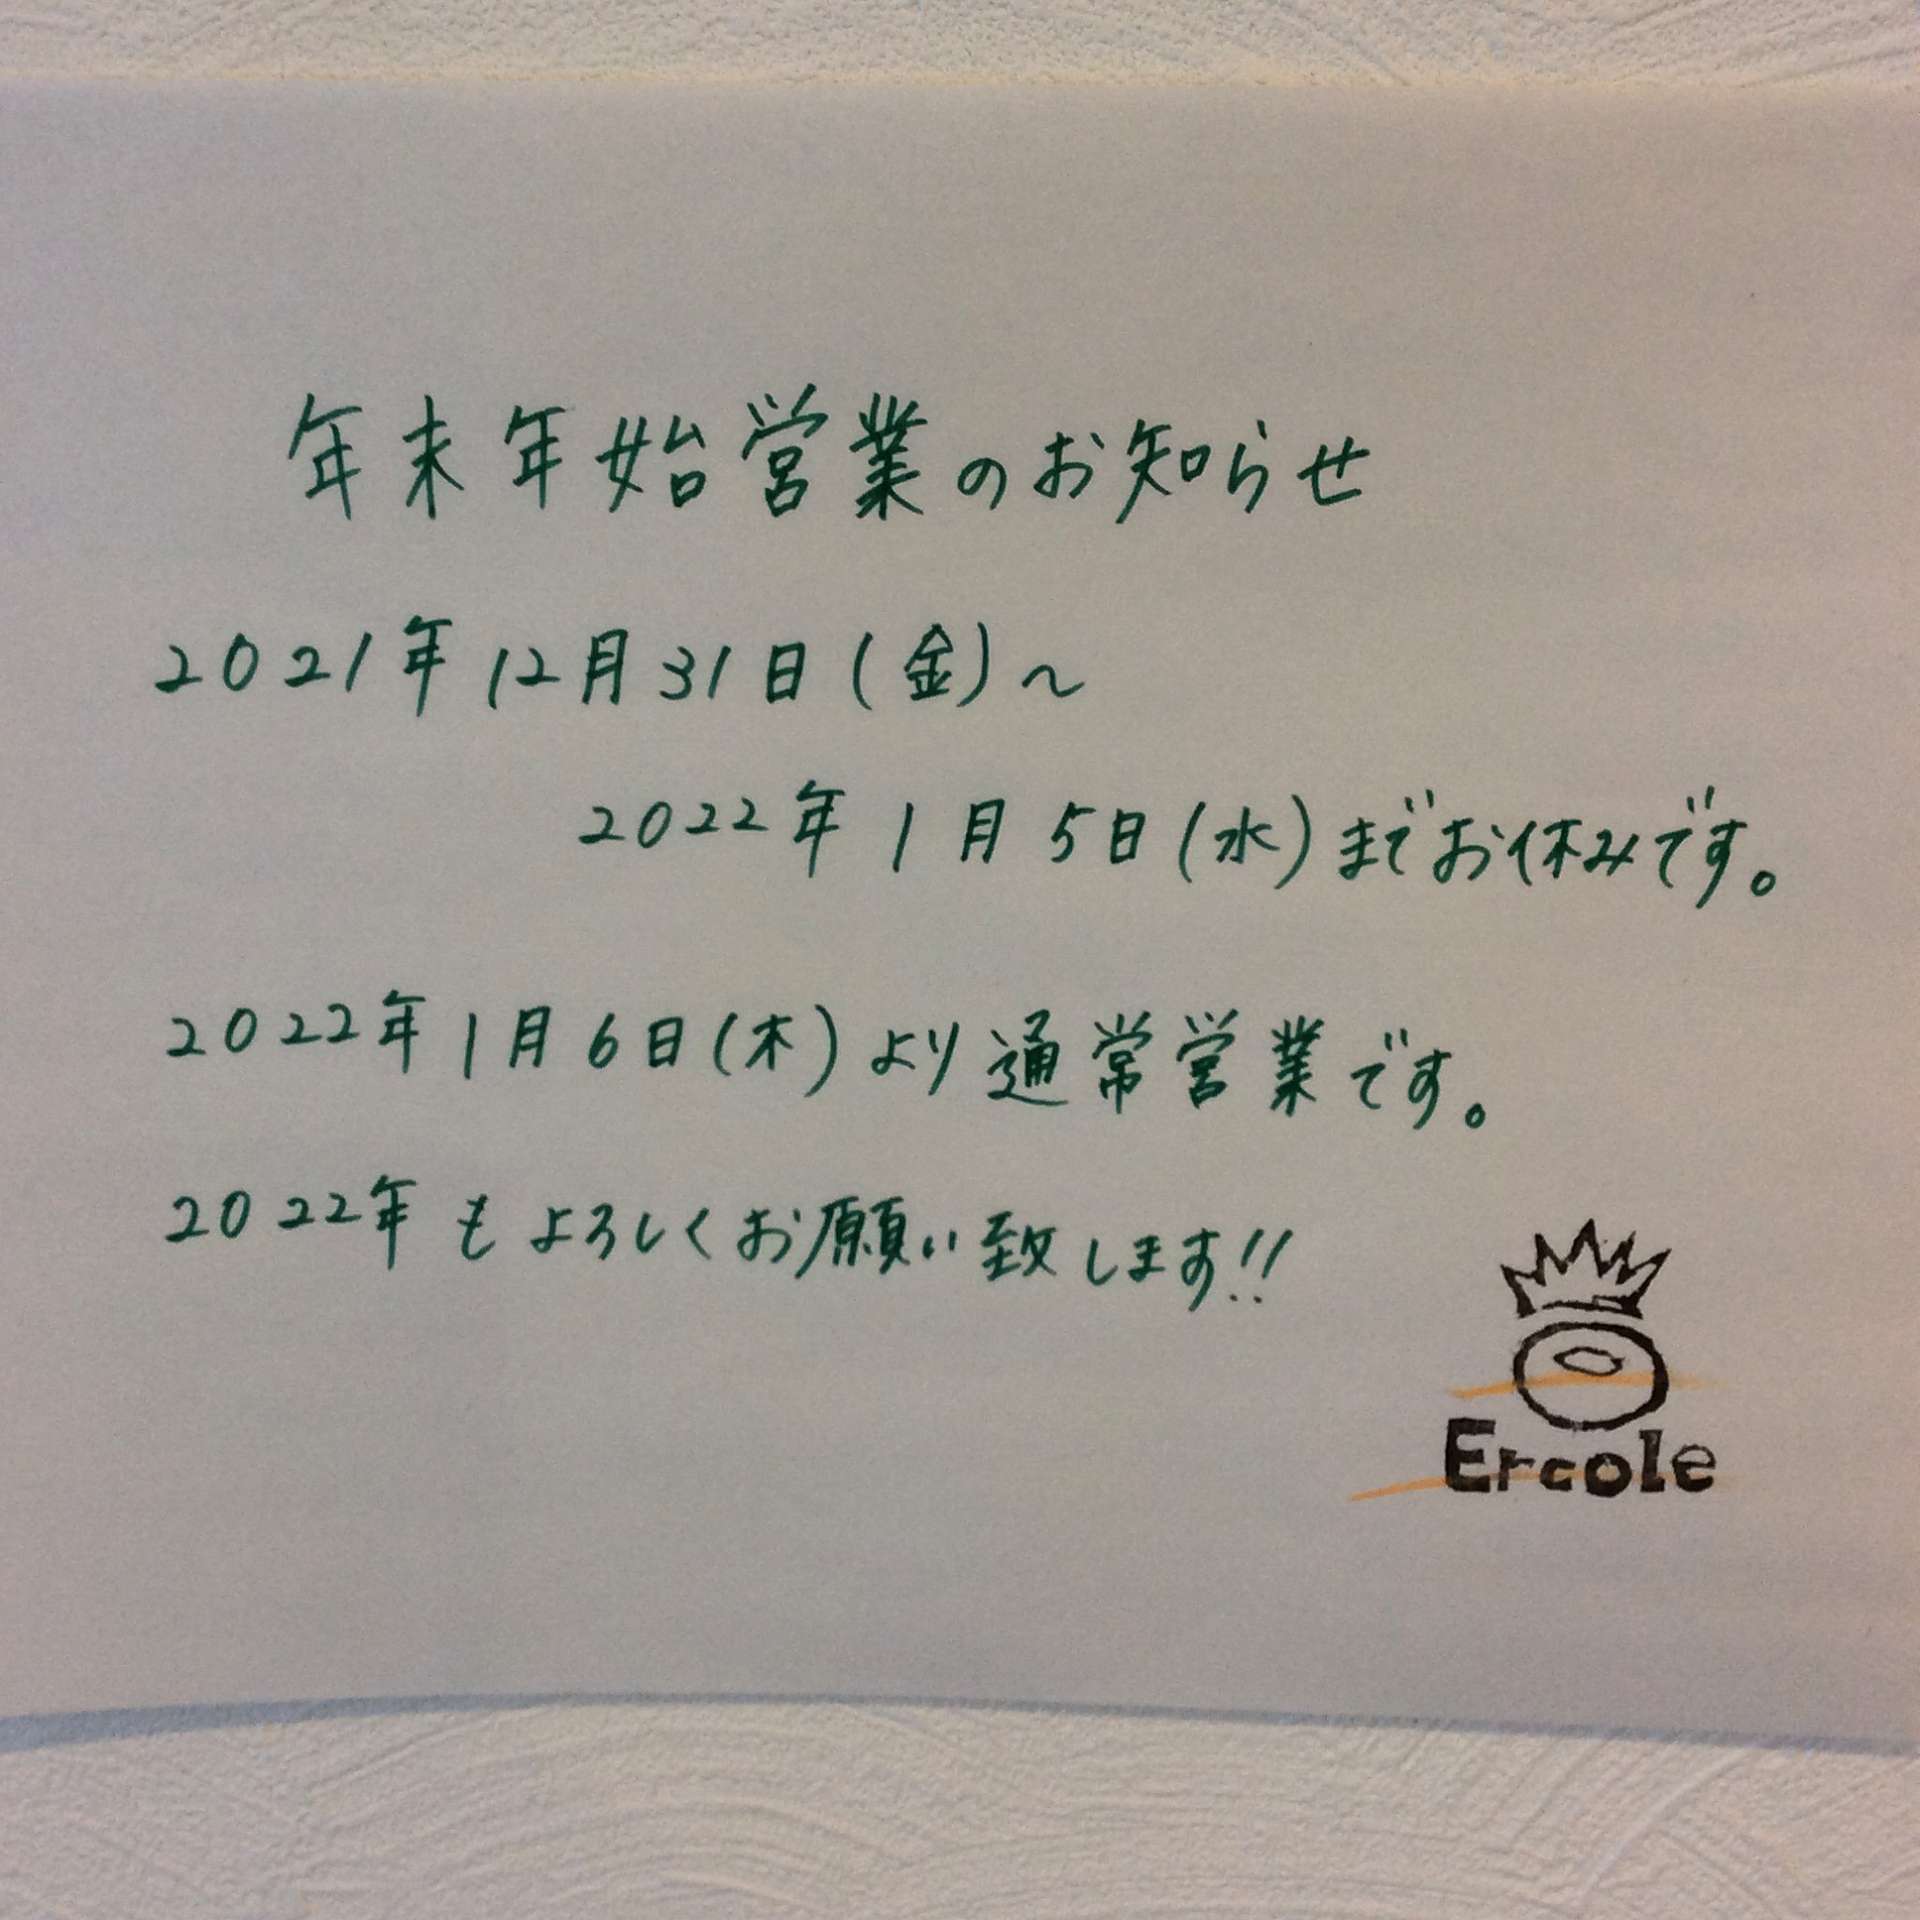 年末年始営業のお知らせ
2021年12月31日(金)~
2022年1月5日(水)までお休みです。
2022年1月6日(木)より通常営業です。
2022年もよろしくお願い致します!!
Ercole